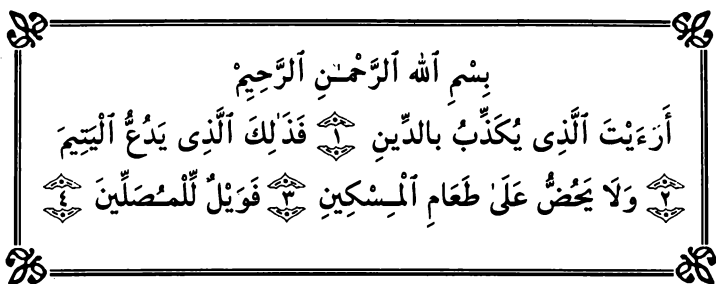 بِسْمِ ٱللهِ ٱلرَّحْمَـٰنِ ٱلرَّحِيمْ
أَرَءَيْتَ ٱلَّذِى يُكَذِّبُ بِالدِّينِ ١ فَذَٰلِكَ ٱلَّذِى يَدُعُّ ٱلْيَتِيمَ
٢ وَلَا يَحُضُّ عَلَىٰ طَعَامِ ٱلْمِسْكِينِ ٣ فَوَيْلٌ لِّلْمُصَلِّينَ ٤